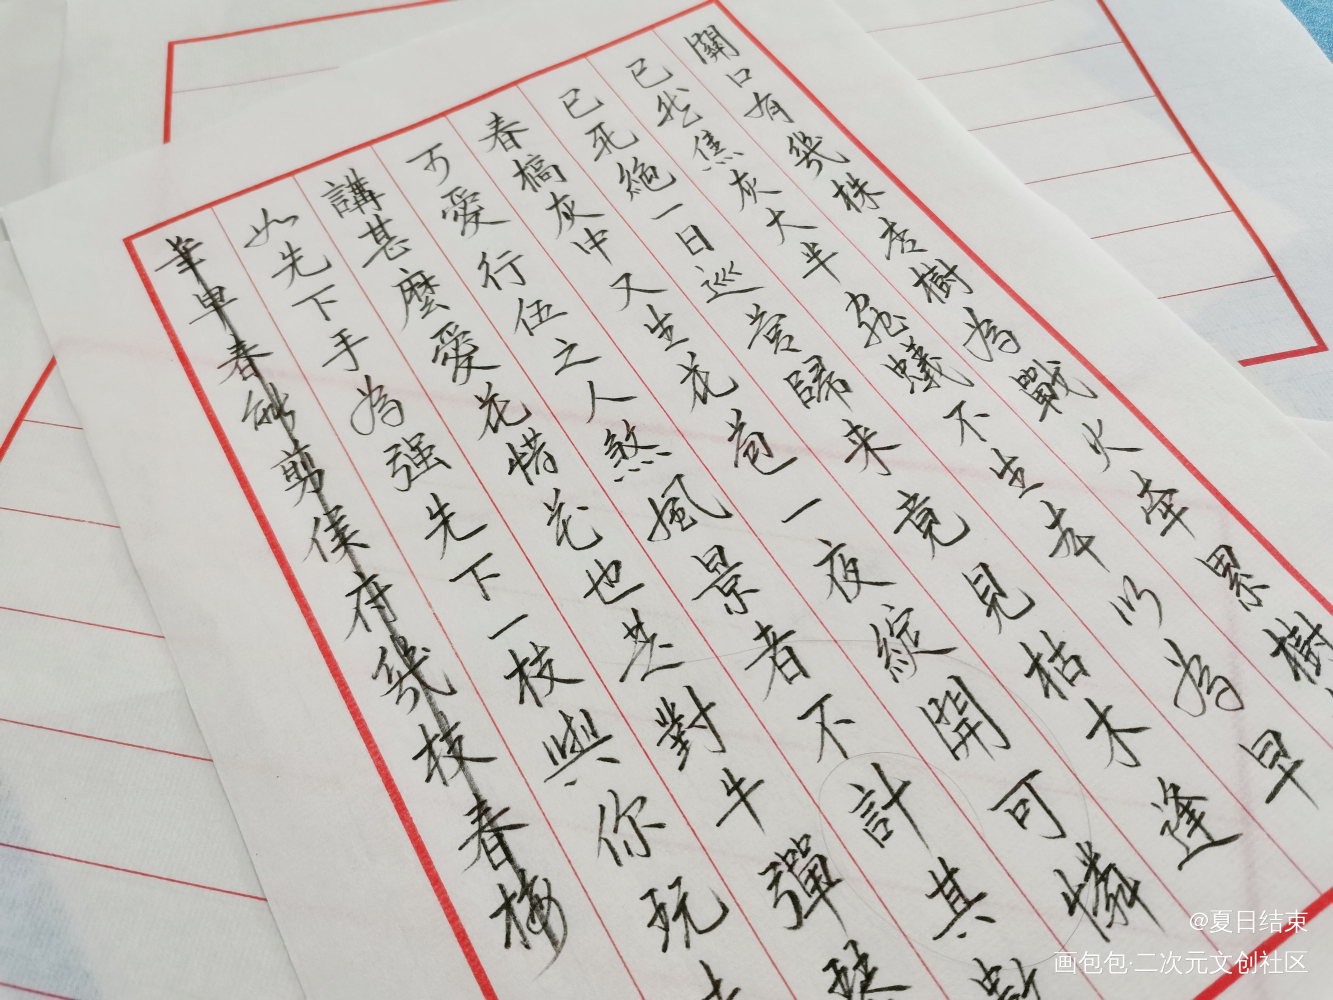 關口有幾株杏樹為戰火牽累樹
已然焦灰大半蟲蟻不生本以為早
已死絕一日巡營歸来竟見枯木逢
春槁灰中又生花苞一夜綻開可憐
可愛行伍之人煞風景者不計其數
講甚麼愛花惜花也是對牛彈琴
如先下手為强先下一枝與你玩
春剪侯府幾枝春梅
@夏日结束
画包包·二次元文创社区